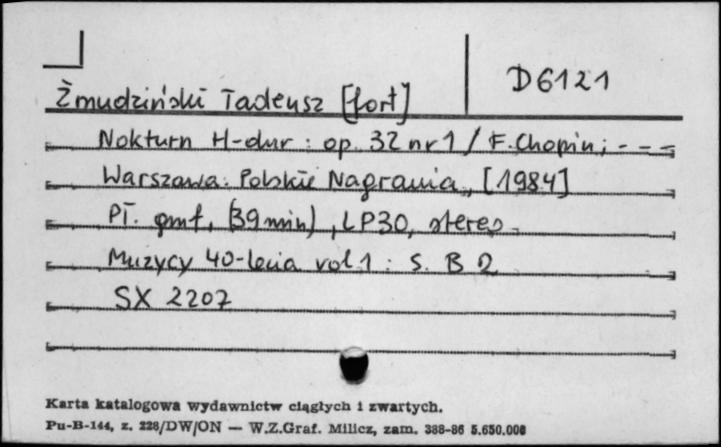 D6121
Żmudziński Tadeusz [fort]
Nokturn H-dur : op. 32 nr 1 / F. Chopin ; - - -
Warszawa : Polskie Nagrania, [1984]
Pł. gmf, (39 min), LP30, stereo.
Muzycy 40-lecia vol. 1 : S. B 2
SX 2207
Karta katalogowa wydawnictw ciągłych i zwartych.
Pu-B-144, z. 228/DW/ON — W.Z.Graf. Milicz, zam. 388-86 5.650.000